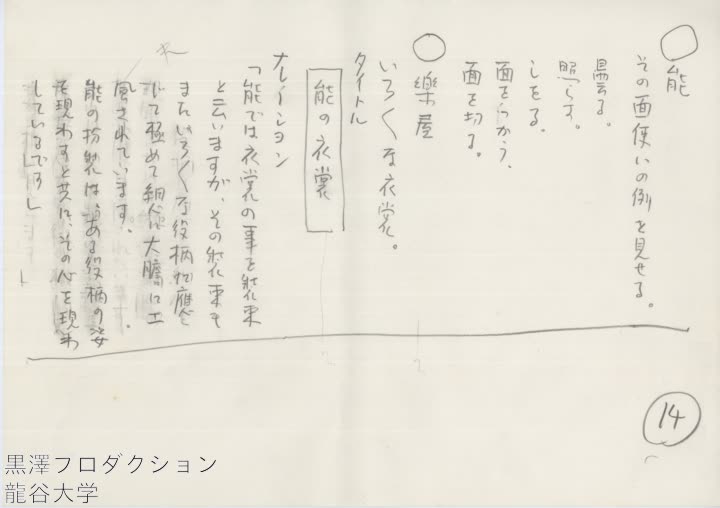 ○能
その面使いの例を見せる。
曇る。
照らす。
しをる。
面をつかう、
面を切る。
○樂屋
いろ〱な衣裳。
タイトル
能の衣裳
ナレーション
「能では衣裳の事を裝束
と云いますが、その裝束も
またいろ〱な役柄に應じ
て極めて細心に大膽に工
風されています。
能の扮裝は、ある役柄の姿
を現わすと共に、その心を現わ
しているのです」
14
黒澤プロダクション
龍谷大学